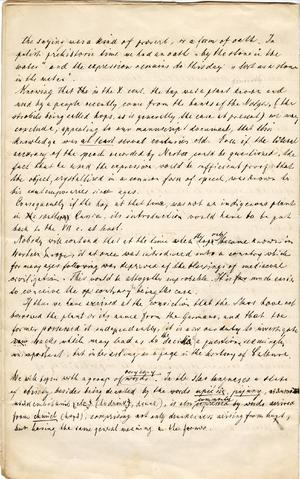 the saying were a kind of proverb, or a form of oath. In
polish prehistoric time we had an oath "by the stone in the
water" and the expression remains to this day "is lost as a stone
in the water".
Knowing that in the X cent. the hop were a plant
and by a people recently come from the banks of the Wolga, (the
strobils being called hops, as is generally the case at present) we may
conclude, appealing to our manuscript document, that this
knowledge was at least several centuries old. Even if the literal
accuracy of the speech recorded by Nestor could be questioned, the
fact that he used the expression would be sufficient proof that
the object, crystallized in a common form of speech, was known to
his contemporaries since ages.
Consequently if the hop at that time was not an indigenous plant
in Russia, its introduction would have to be put
back to the VII c. at least.
Nobody will contend that at the time when the hops became known in
Western Europe, it at once was introduced into a country which
for many ages following was deprived of the blessings of mediaeval
civilization. This would be altogether improbable. It is far more easier
to conceive the contrary being the case.
After we have arrived at the conviction that the Slavs have not
borrowed the plant or its name from the Germans, and that the
former possessed it independently, it is now our duty to investigate
tracks which may lead us to decide a question, seemingly
unimportant, but interesting as a page in the history of Culture.
We will begin with a group of words. In the Slav languages a state
of ebriety, besides being denoted by the words
is also expressed by words derived
from chmiel (hops), comprising not only drunkenness arising from hops,
but having the same general meaning as the former.